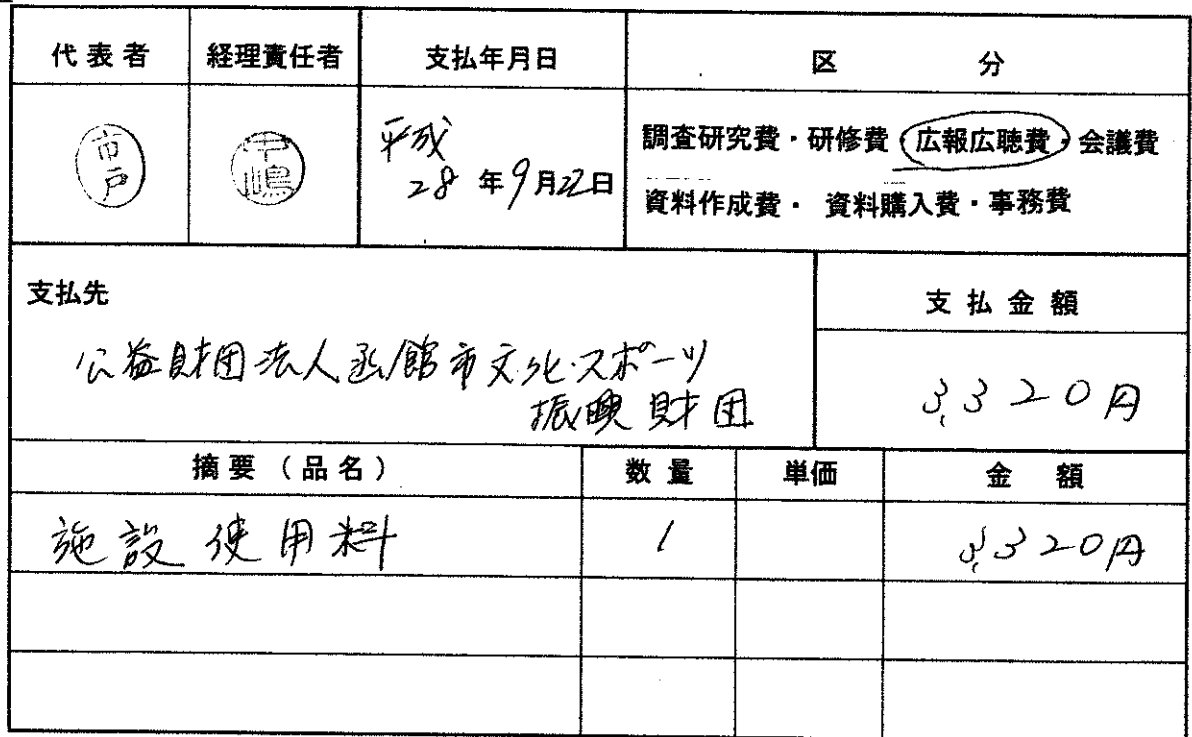 代表者 経理責任者 支払年月日 区 分
市戸
平成
28年9月22日
調査研究費・研修費・広報広聴費・会議費
資料作成費・ 資料購入費・事務費
支払先
支払金額
公益財団法人函館市文化・スポーツ
振興財団
3,320円
摘要(品名) 数量 単価 金 額
施設使用料 1 3,320円